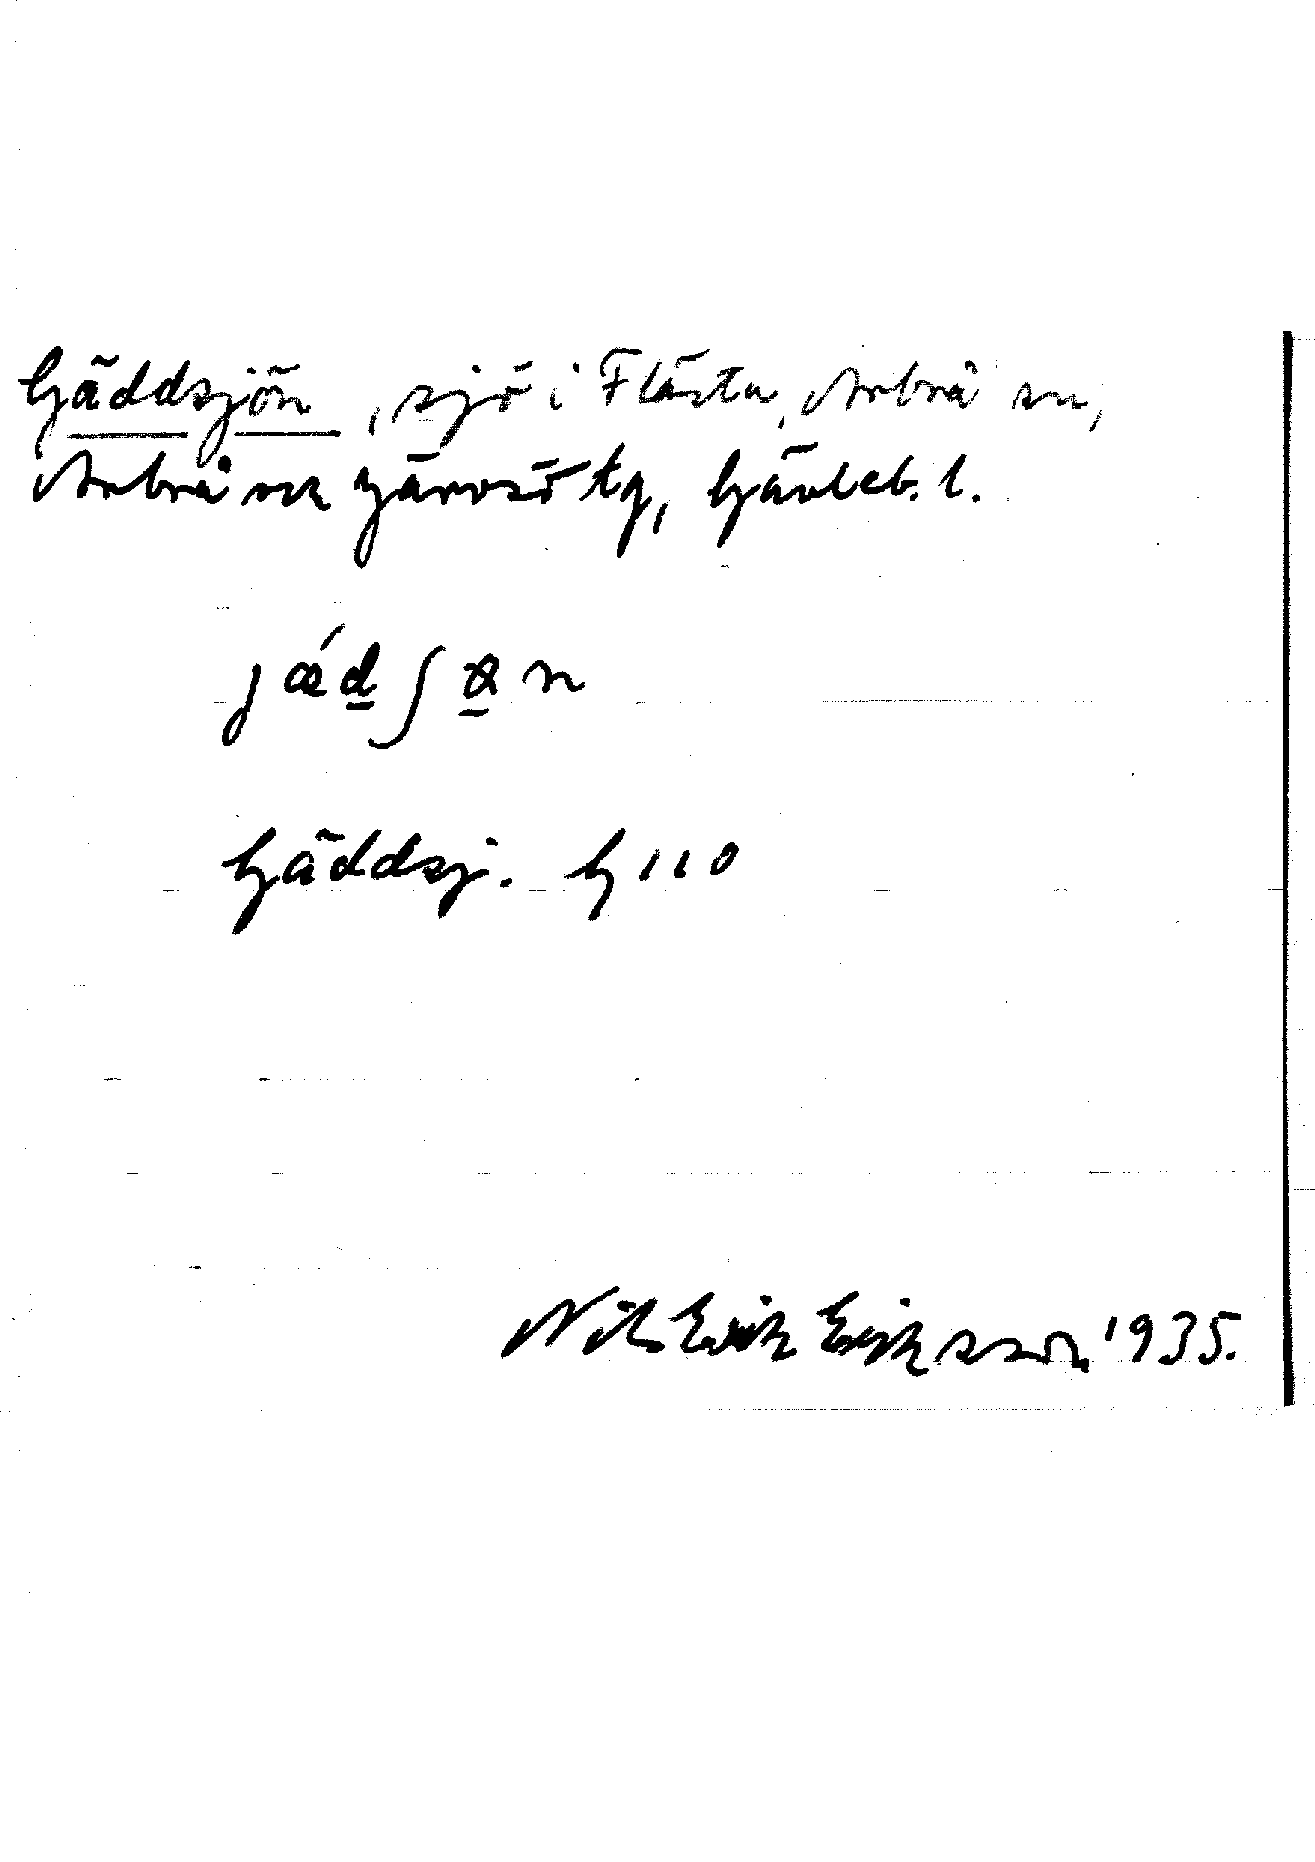 Gäddsjön, sjö i Flästa, Arbrå sn,
Arbrå ock Järvsö tg, Gävleb. l.
jǽd̲ʃn
Gäddsj. G 110
Nils Erik Eriksson 1935.